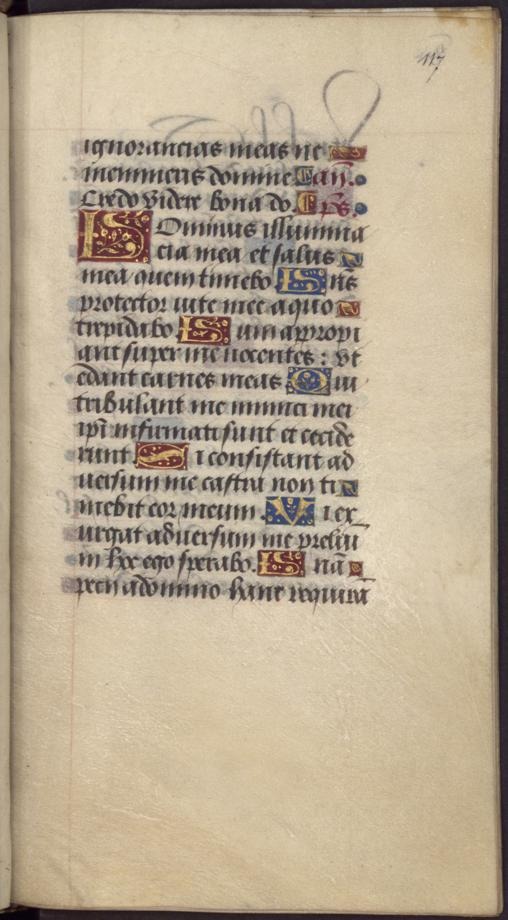 117
ignorancias meas ne
memineris domine an̄.
Credo videre bona do. ps.
Dominus illumina
cia mea et salus
mea quem timebo Dn̄s
protector vite mee a quo
trepidabo Dum appropi
ant super me nocentes : vt
edant carnes meas Qui
tribulant me inimici mei
ip̄i infirmati sunt et cecide
runt Si consistant ad
uersum me castra non ti
mebit cor meum. Vi ex
urgat aduersum me preliū
in hoc ego sperabo. Vnā
pecij a domino hanc requirā